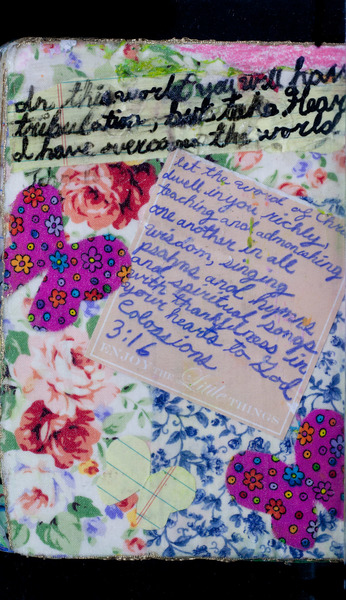 In this world you will have
tribulation, but take Heart
I have overcome the world
let the word of Ch
dwell in you richly,
teaching and admonishing
one another in all
wisdom, singing
psalms and hymns
and spiritual songs
with thankfulness in
your hearts to God
Colossians
3:16
ENJOY THE Little THINGS